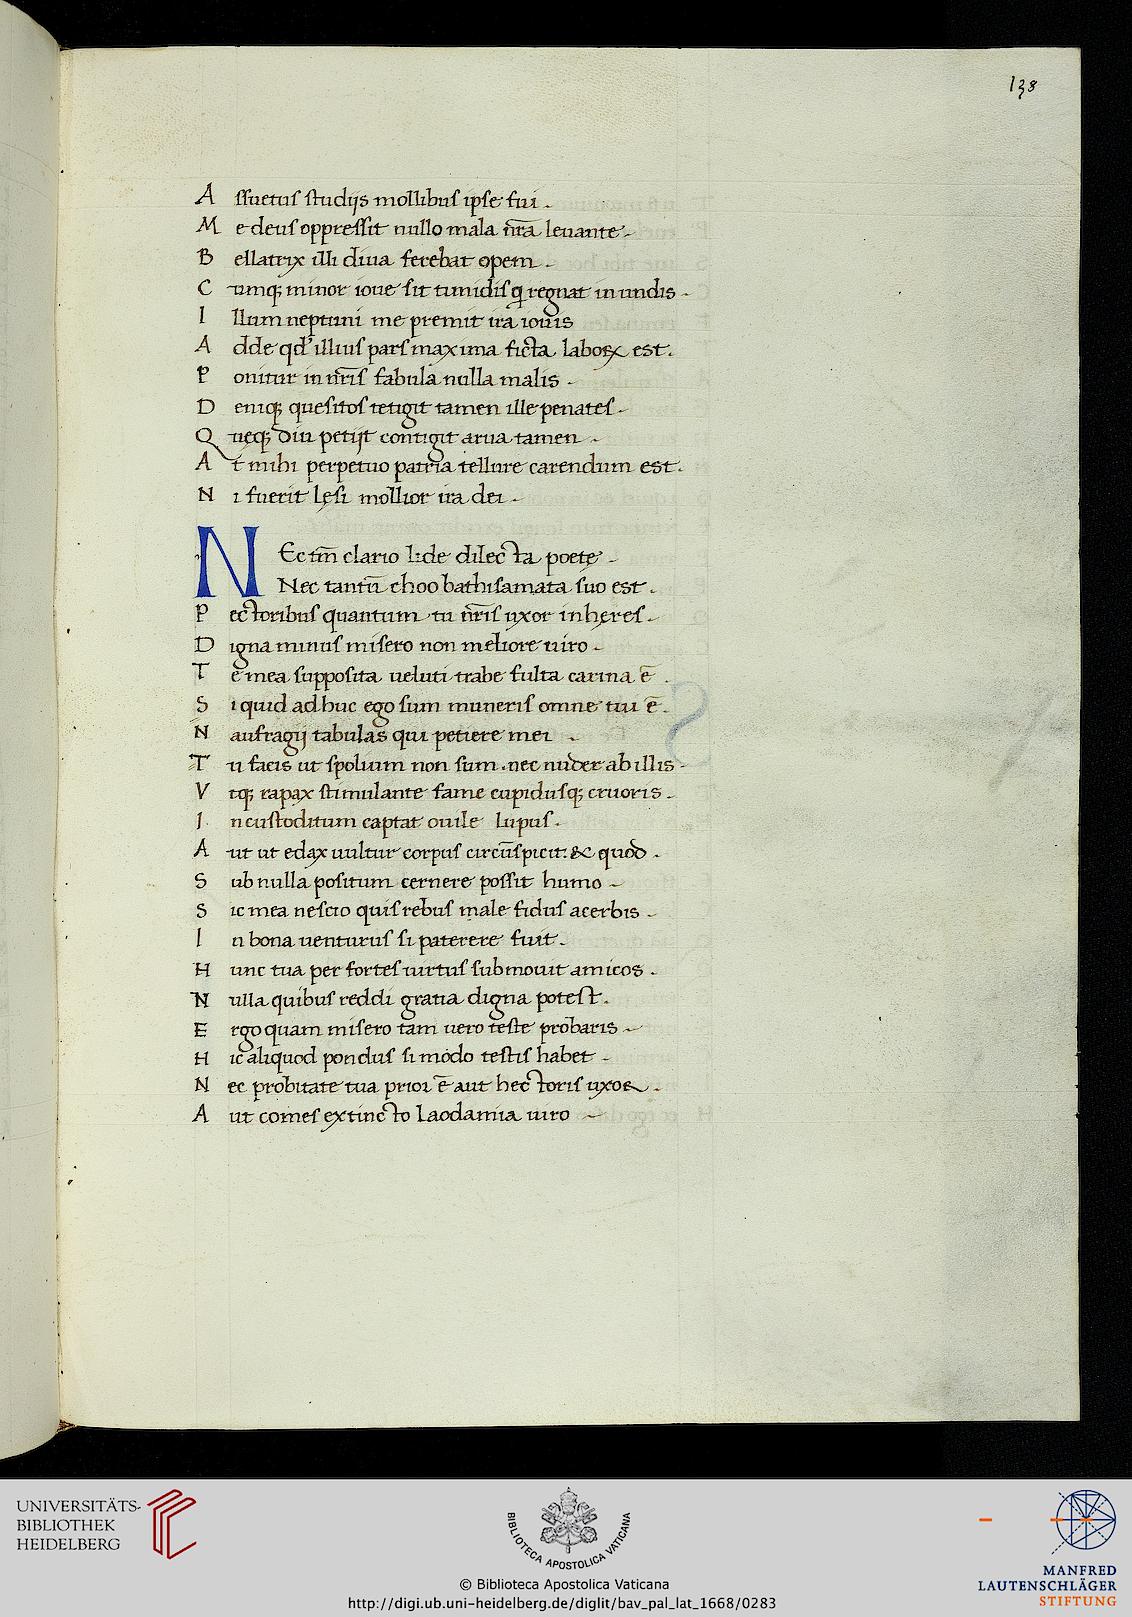 138
A ssuetus studijs mollibus ipse fui .
M e deus oppressit nullo mala nr̄a leuante .
B ellatrix illi diua ferebat opem .
C umq; minor ioue sit tumidis q̣ regnat in undis .
I llum neptuni me premit ira iouis
A dde qd' illius pars maxima ficta laboꝝ est .
P onitur in nr̄is fabula nulla malis .
D eniq; quesitos tetigit tamen ille penates .
Q ueq; diu petijt contigit arua tamen .
A t mihi perpetuo patria tellure carendum est .
N i fuerit lęsi mollior ira dei .
N Ec tm̄ clario lide dilecta poetę .
Nec tantū choo bathis amata suo est .
P ectoribus quantum tu nr̄is uxor inheres .
D igna minus misero non meliore uiro .
T e mea supposita ueluti trabe fulta carina ē .
S i quid adhuc ego sum muneris omne tui ē .
N aufragij tabulas qui petiere mei .
T u facis ut spolium non sim . nec nuder ab illis .
V tq; rapax stimulante fame cupidusq; cruoris .
I n custoditum captat ouile lupus .
A ut ut edax uultur corpus circūspicit . & quod .
S ub nulla positum cernere possit humo .
S ic mea nescio quis rebus male fidus acerbis .
I n bona uenturus si paterere fuit .
H unc tua per fortes uirtus submouit amicos .
N ulla quibus reddi gratia digna potest .
E rgo quam misero tam uero teste probaris .
H ic aliquod pondus si modo testis habet .
N ec probitate tua prior ē aut hectoris uxor .
A ut comes extincto Laodamia uiro .
UNIVERSITÄTS-
BIBLIOTHEK
HEIDELBERG
BIBLIOTECA APOSTOLICA VATICANA
© Biblioteca Apostolica Vaticana
http://digi.ub.uni-heidelberg.de/diglit/bav_pal_lat_1668/0283
MANFRED
LAUTENSCHLÄGER
STIFTUNG